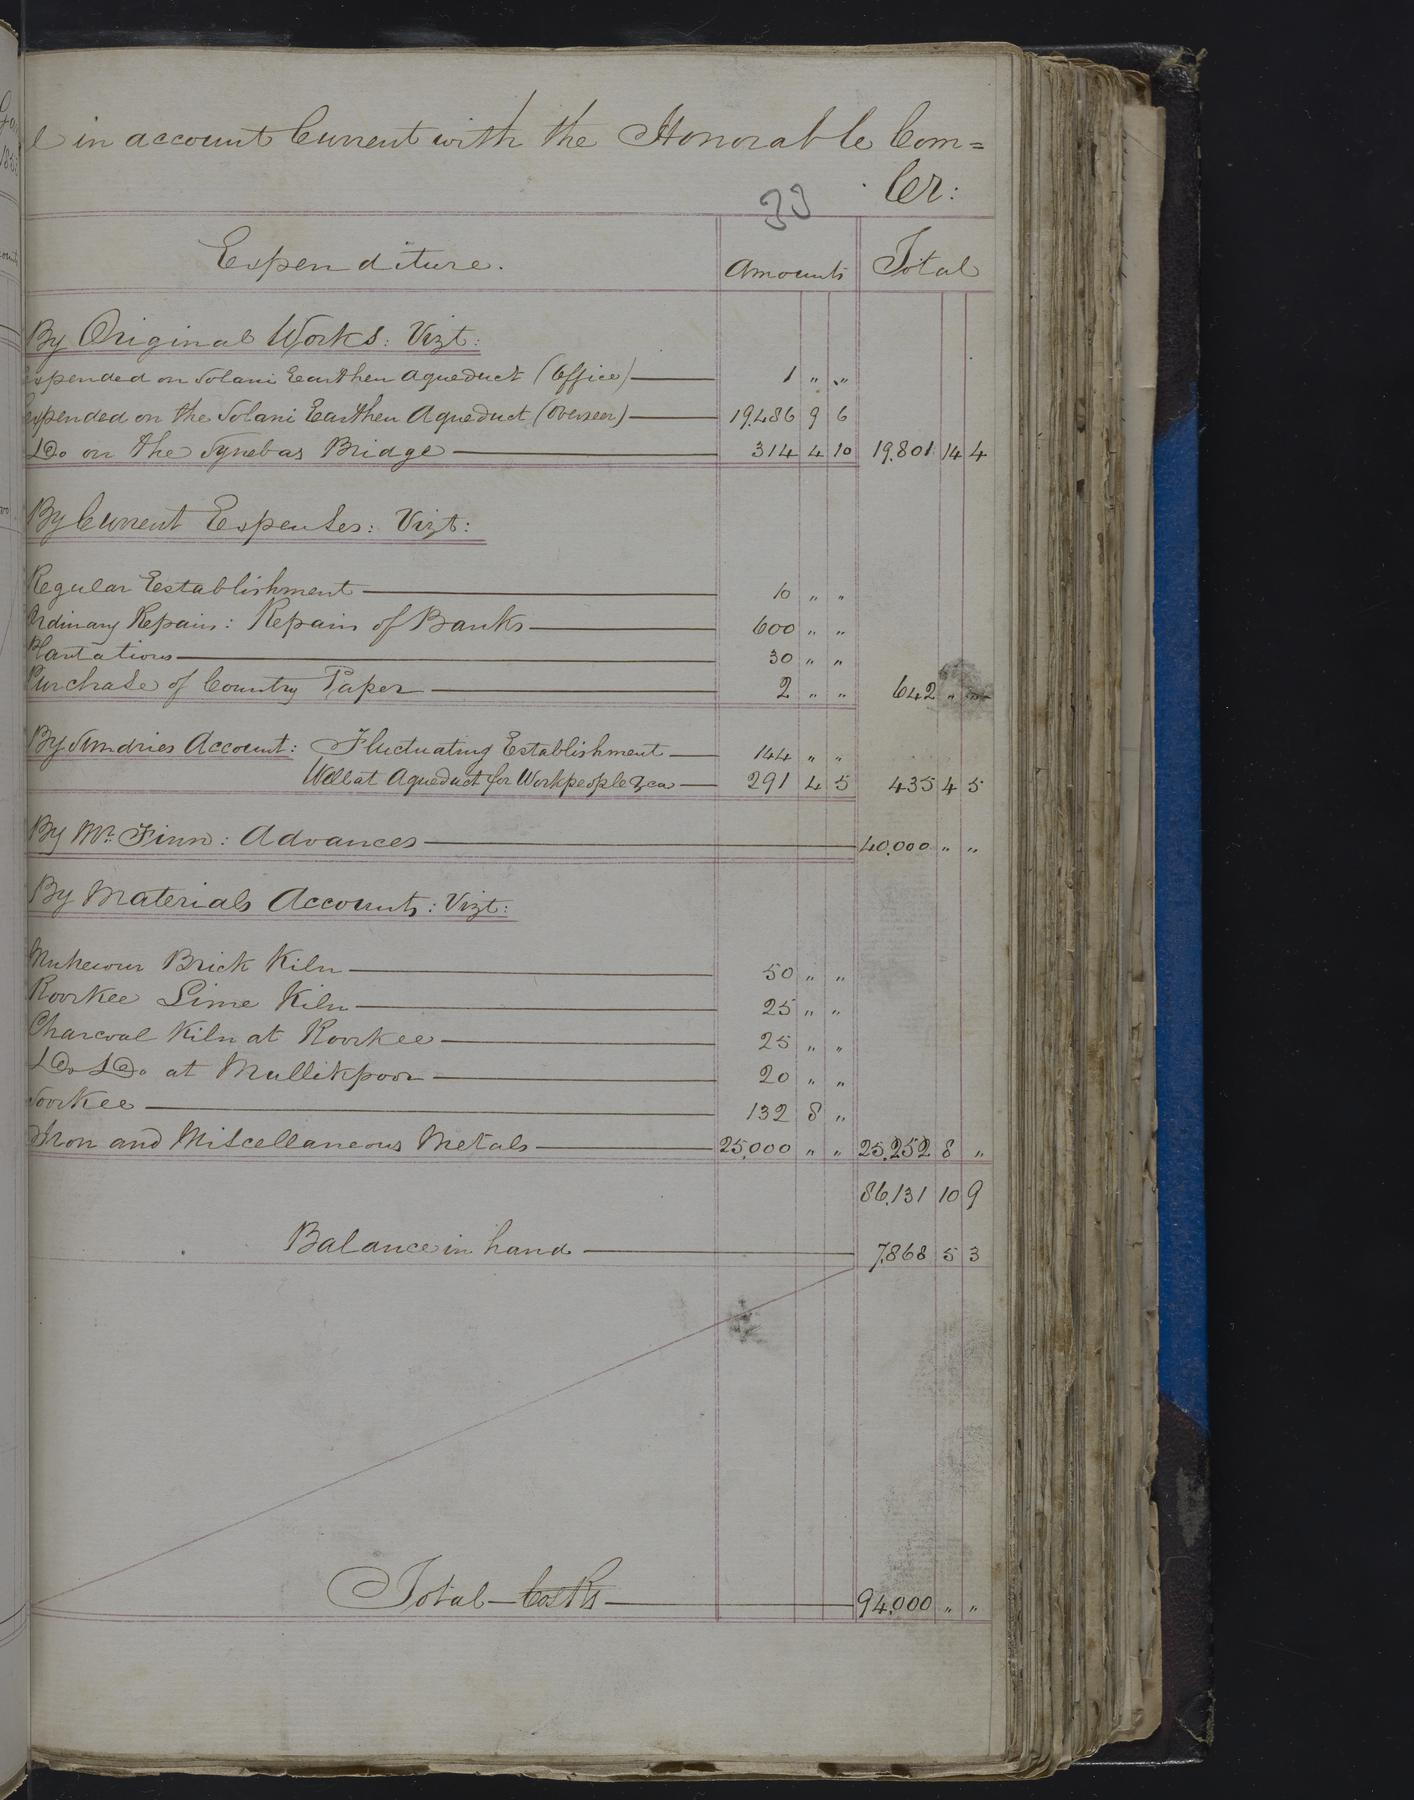 in account Current with the Honorable Com=
33 Cr:
Expenditure. Amounts Total
By Original Works: Vizt:
Expended on Solani Earthen Aqueduct (Office) 1 " "
expended on the Solani Earthen Aqueduct (Overseer) 19,486 9 6
Do on the Bridge 314 4 10 19,801 14 4
By Current Expenses: Vizt:
Regular Establishment 10 " "
Ordinary Repairs: Repairs of Banks 600 " "
Plantations 30 " "
Purchase of Country Paper 2 " " 642 "
By Sundries Account: Fluctuating Establishment 144 " "
Well at Aqueduct for Workpeople &ca 291 4 5 435 4 5
By Mr. Finn: Advances 40,000 " "
By Materials Accounts: Vizt:
Brick Kiln 50 " "
Roorkee Lime Kiln 25 " "
Charcoal Kiln at Roorkee 25 " "
Do Do at Mullikpoor 20 " "
Soorkee 132 8 "
Iron and Miscellaneous Metals 25,000 " " 25,252 8 "
86,131 10 9
Balance in hand 7,868 5 3
Total Co's Rs 94,000 " "